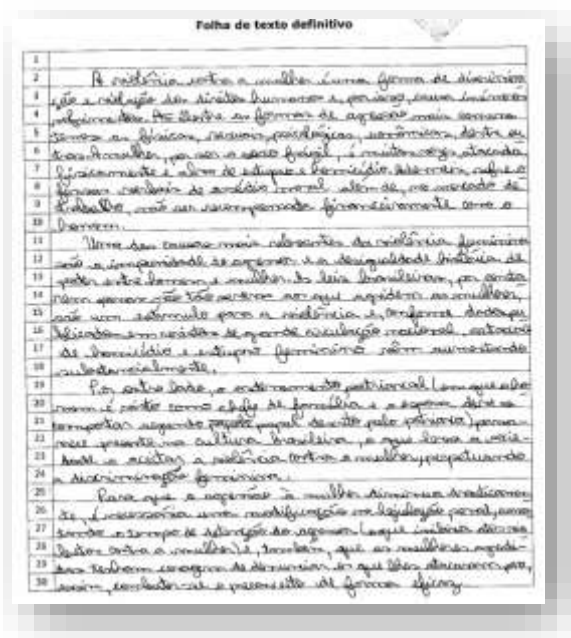 Folha de texto definitivo
1
2 A violência contra a mulher é uma forma de discrimina
3 ção e violação dos direitos humanos e, por isso, causa inúmeros
4 As dentre as formas de agressão mais comuns
5 temos as físicas, sexuais, psicológicas, econômicas, dentre ou
6 tras. A mulher, por ser o sexo frágil, é muitas vezes atacada
7 fisicamente e alvo de estupro e homicídio. Ademais, sofre
8 formas verbais de assédio moral além de, no mercado de
9 trabalho, não ser recompensada financeiramente como o
10 homem.
11 Uma das causas mais relevantes da violência feminina
12 são a impunidade do agressor e a desigualdade histórica de
13 poder entre homem e mulher. As leis brasileiras, por
14 tão severas aos que agridem as mulheres,
15 são um estímulo para a violência e, conforme dados pu
16 blicados em revistas de grande circulação nacional,
17 de homicídio e estupro feminino vêm aumentando
18 substancialmente.
19 Por outro lado, o ordenamento patriarcal (em que o ho
20 mem é visto como chefe de família e a esposa deve se
21 comportar segundo papel descrito pelo patriarca) perma
22 nece presente na cultura brasileira, o que leva a socie
23 dade a aceitar a violência contra a mulher, perpetuando
24 a discriminação feminina.
25 Para que a agressão à mulher diminua drasticamen
26 te, é necessária uma modificação na legislação penal, aumen
27 tando o tempo de detenção do agressor (o que inibiria atos vio
28 lentos contra a mulher) e, também, que as mulheres agredi
29 das tenham coragem de denunciar os que lhes atacaram para,
30 assim, combater-se o preconceito de forma eficaz.